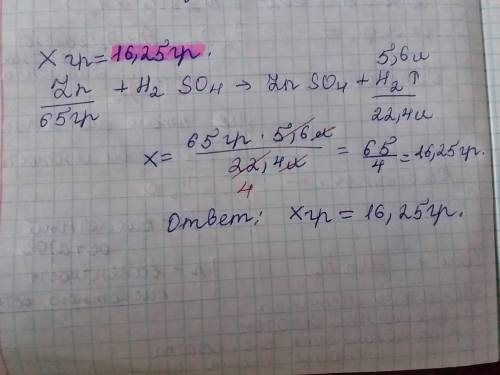 X гр= 16,25гр.
5,6л
Zn + H₂ SO₄ → Zn SO₄ + H₂↑
65гр 22,4л
X= 65 гр · 5,6л / 22,4л = 65/4 = 16,25гр.
4
Ответ: Xгр = 16,25гр.